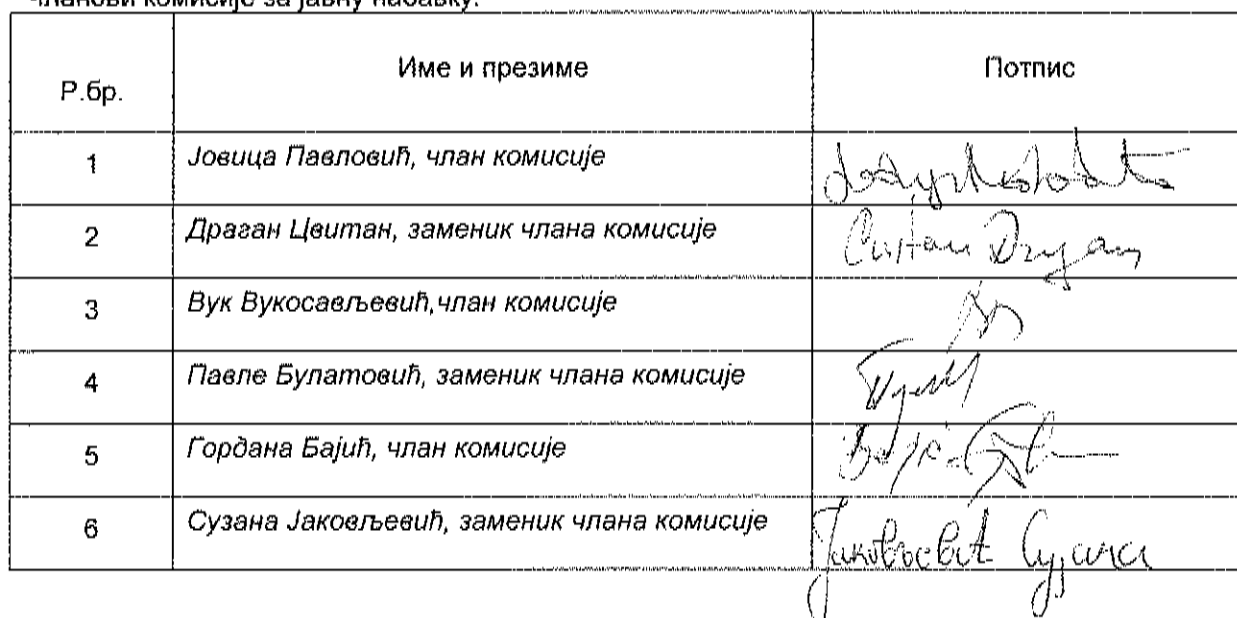 Чланови комисије за јавну набавку:
Р.бр. Име и презиме Потпис
1 Јовица Павловић, члан комисије
2 Драган Цвитан, заменик члана комисије
3 Вук Вукосављевић,члан комисије
4 Павле Булатовић, заменик члана комисије
5 Гордана Бајић, члан комисије
6 Сузана Јаковљевић, заменик члана комисије Јаковљевић Сузана